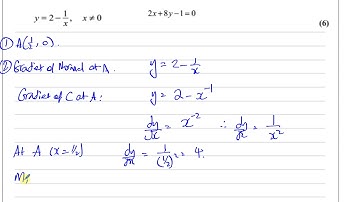 y = 2 − 1/x, x ≠ 0 2x + 8y − 1 = 0
(6)
① A(½, 0).
② Gradient of Normal at A. y = 2 − 1/x
Gradient of C at A: y = 2 − x⁻¹
dy/dx = x⁻² ∴ dy/dx = 1/x²
At A (x = ½) dy/dx = 1/(½)² = 4.
M